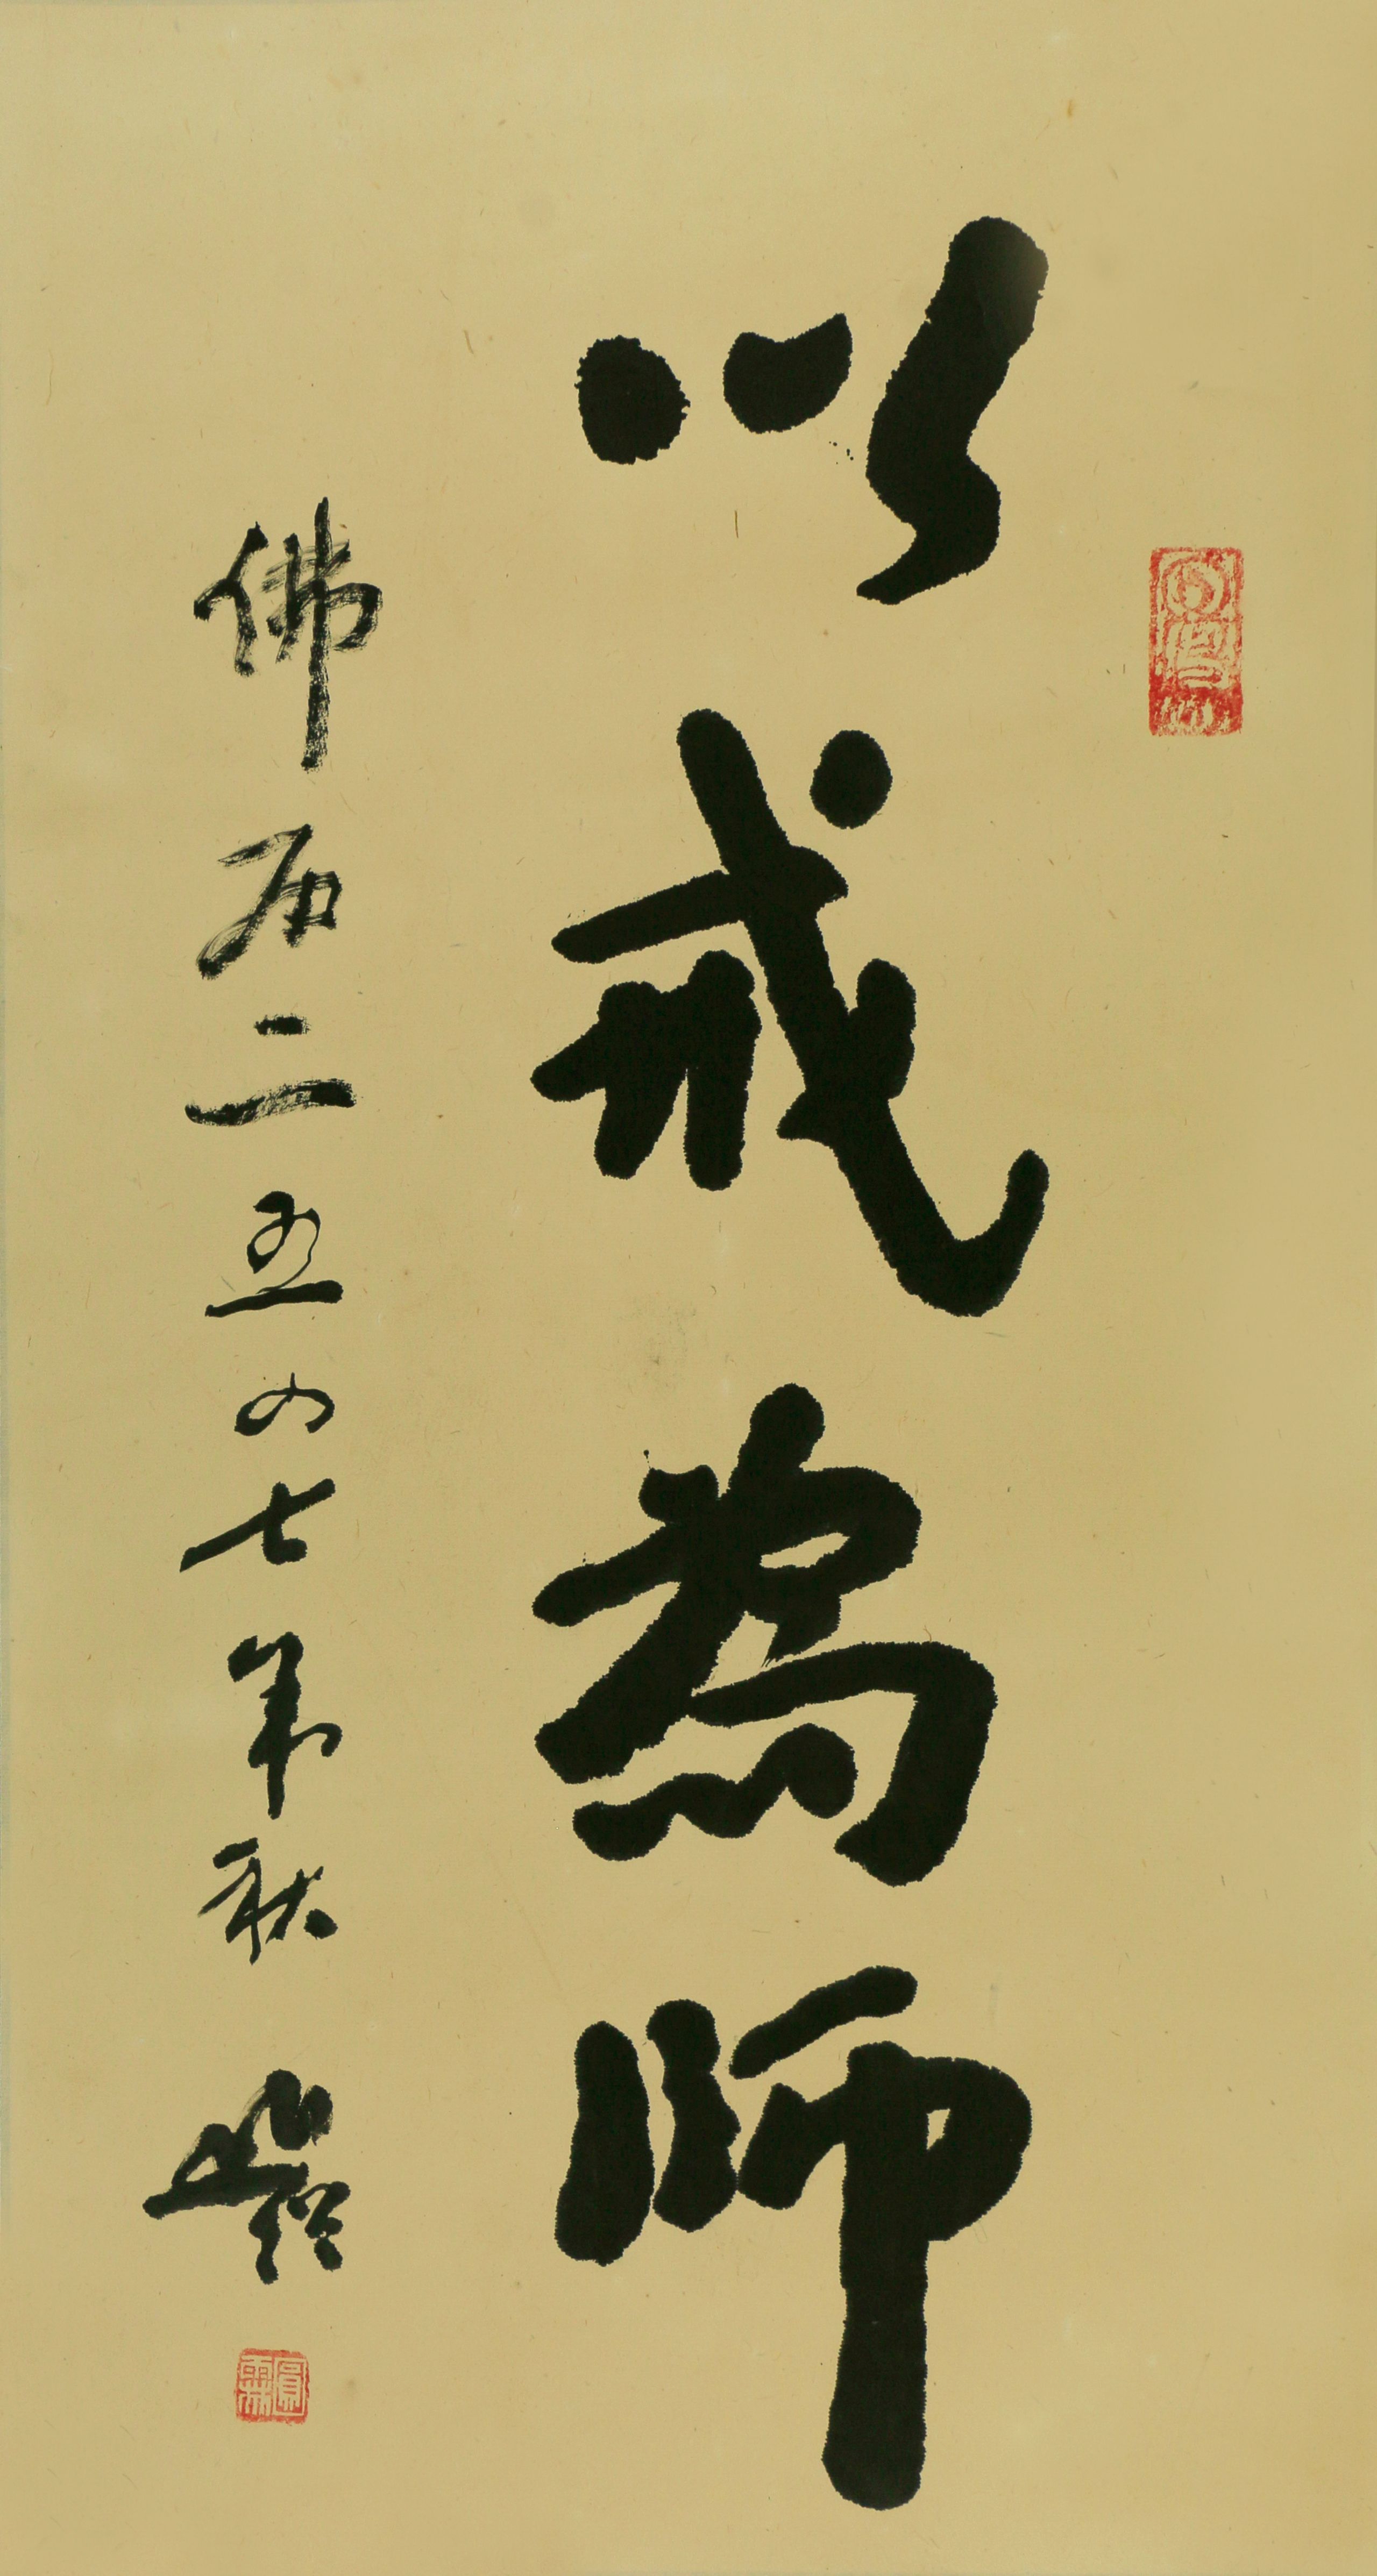 以戒為師
佛历二五四七年秋
圓霖